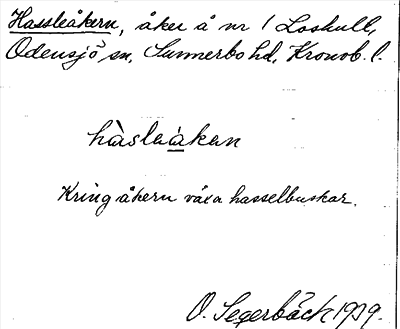 Hassleåkern, åker å nr 1 Loshult,
Odensjö sn, Sunnerbo hd, Kronob. l.
hàslaákan
Kring åkern växa hasselbuskar.
O. Segerbäck 1939.